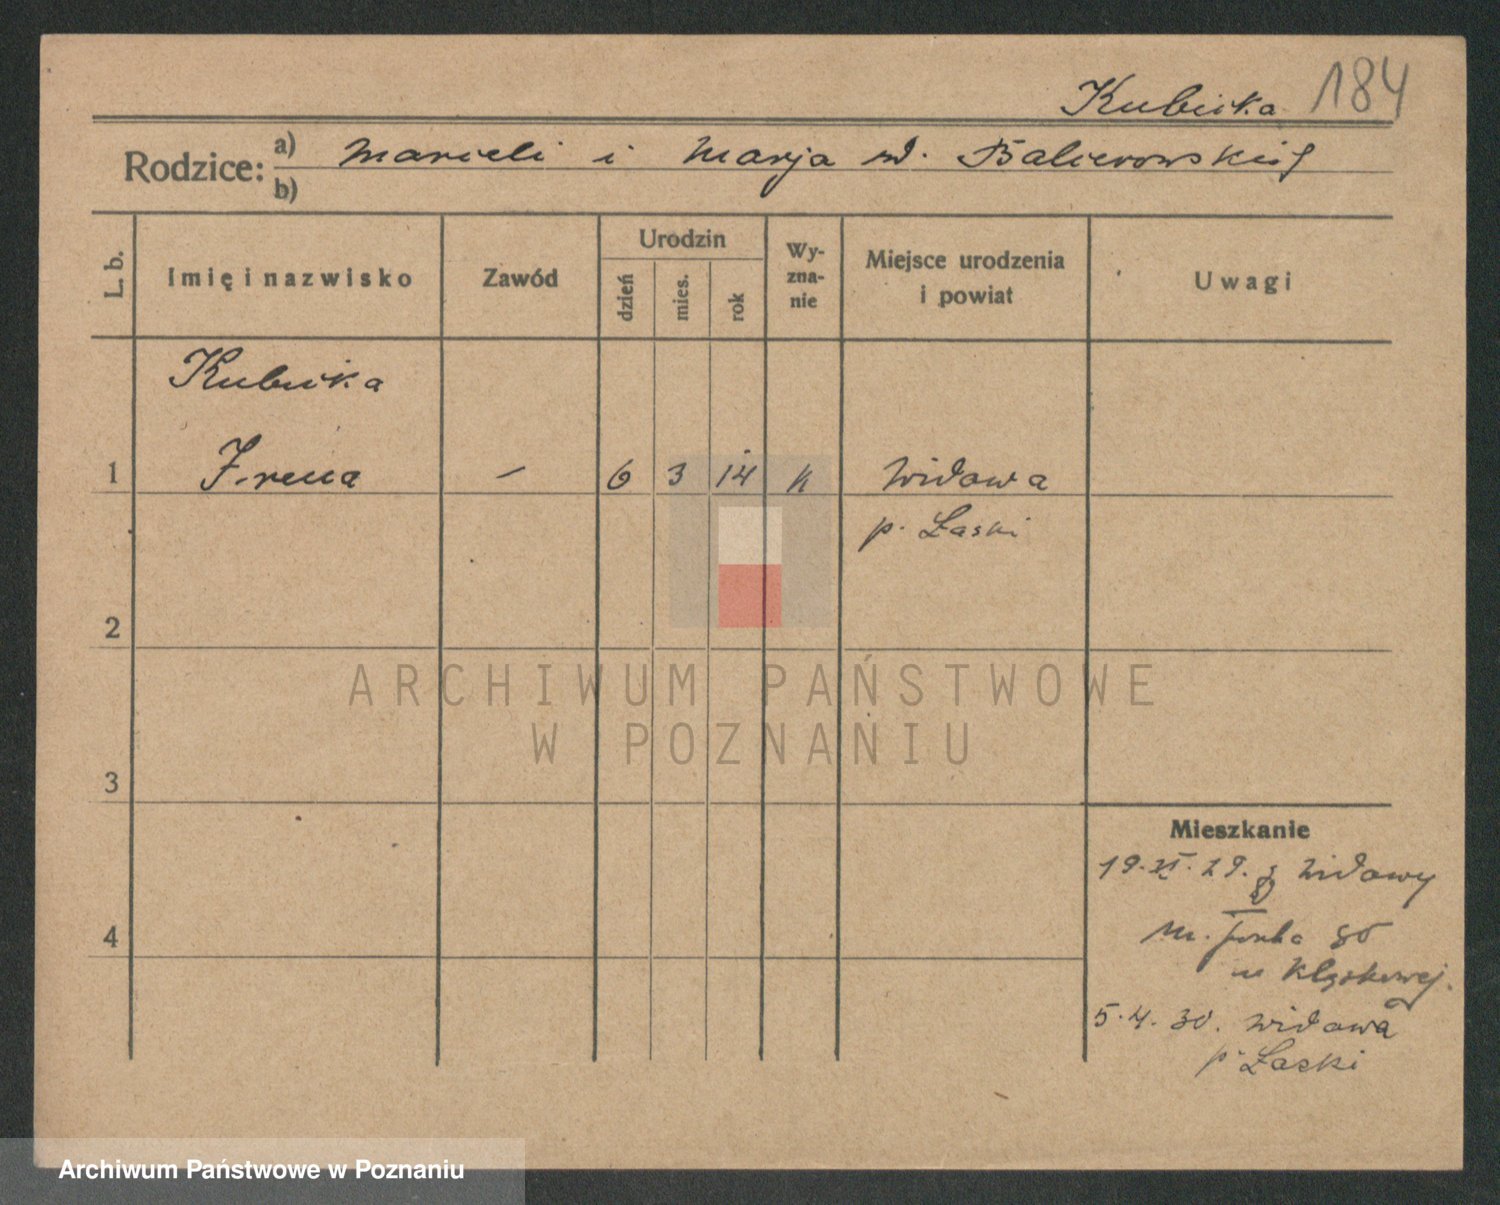 Kubicka 184
Rodzice: a) Marceli i Marja
b)
L. b.
Imię i nazwisko
Zawód
Urodzin
dzień
mies.
rok
Wy-
zna-
nie
Miejsce urodzenia
i powiat
Uwagi
Kubicka
1 Irena – 6 3 14 k Widawa
p. Łaski
2
3
4
Mieszkanie
19. XI. 29. z Widawy
80
5.4.30. Widawa
p. Łaski
ARCHIWUM PAŃSTWOWE
W POZNANIU
Archiwum Państwowe w Poznaniu